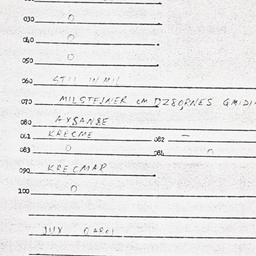 030 0
040 0
050 0
060
070 MILSTEJNER OM DZBORNES GMIDI
080 AVSANBE
081 KRECME 082 –
083 0 084 0
090 KRECMAR
100 0